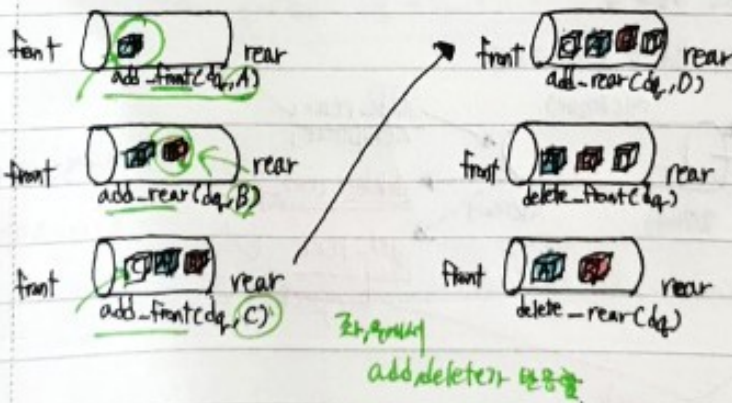 front rear
add_front(dq, A)
front A B rear
add_rear(dq, B)
front C A B rear
add_front(dq, C)
front C A B D rear
add_rear(dq, D)
front A B D rear
delete_front(dq)
front A B rear
delete_rear(dq)
좌,우에서
add,delete가